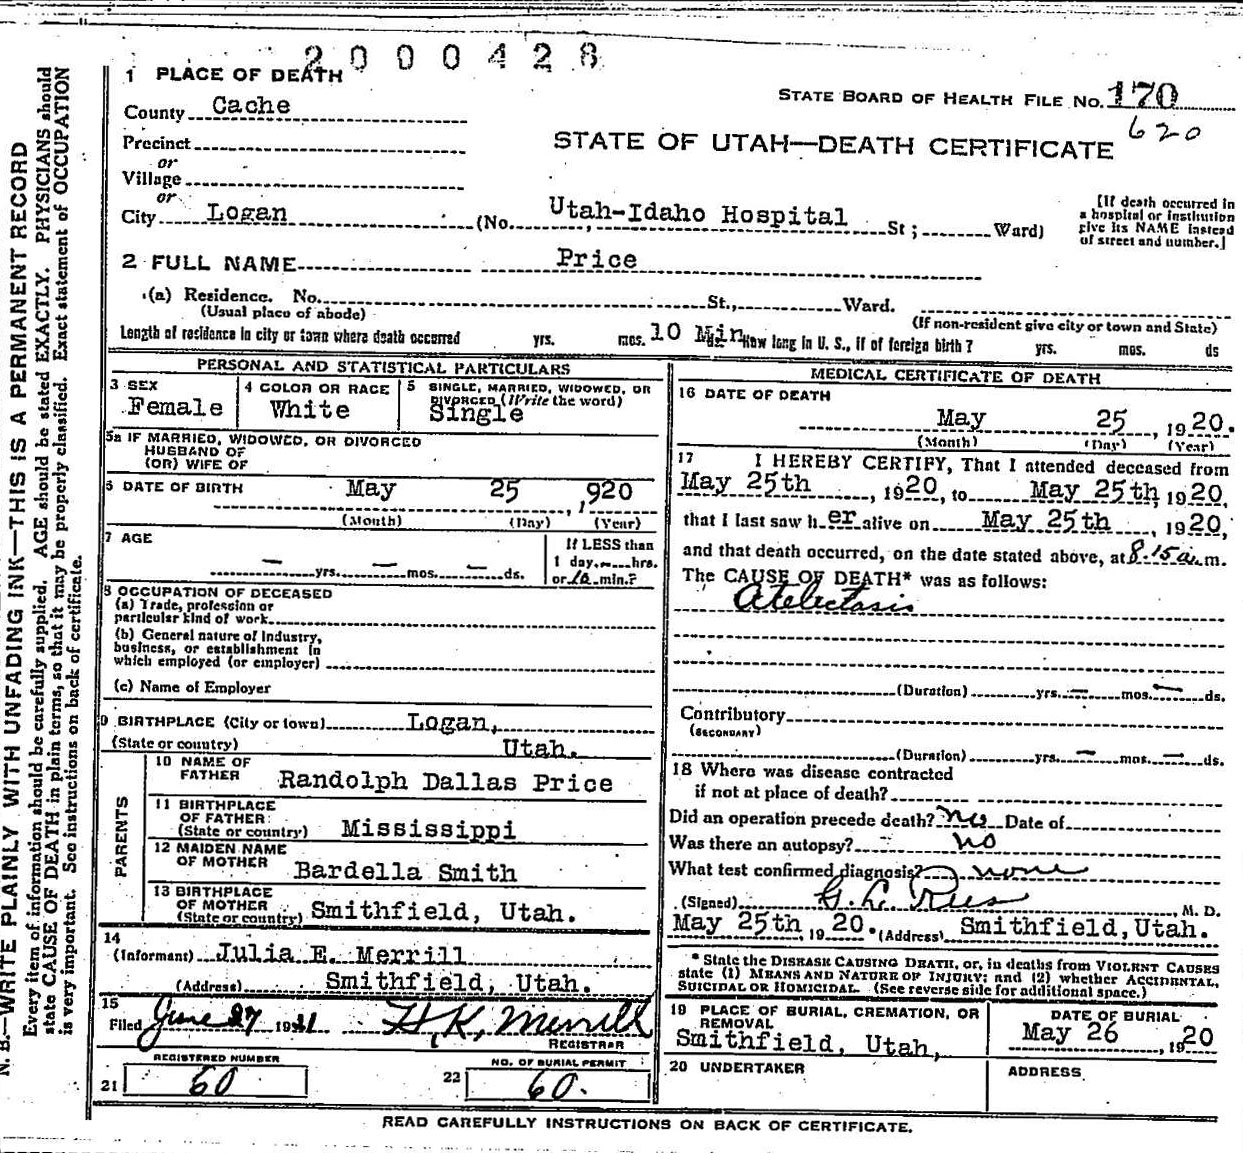 2000428
1 PLACE OF DEATH
County Cache
STATE BOARD OF HEALTH FILE NO. 170
620
Precinct
or
Village
or
City Logan
STATE OF UTAH—DEATH CERTIFICATE
(No. Utah-Idaho Hospital St; Ward)
[If death occurred in
a hospital or institution
give its NAME instead
of street and number.]
2 FULL NAME Price
(a) Residence. No. St., Ward.
(Usual place of abode)
(If non-resident give city or town and State)
Length of residence in city or town where death occurred yrs. mos. 10 Min How long in U. S., if of foreign birth? yrs. mos. ds
N. B.—WRITE PLAINLY WITH UNFADING INK—THIS IS A PERMANENT RECORD
Every item of information should be carefully supplied. AGE should be stated EXACTLY. PHYSICIANS should
state CAUSE OF DEATH in plain terms, so that it may be properly classified. Exact statement of OCCUPATION
is very important. See instructions on back of certificate.
PERSONAL AND STATISTICAL PARTICULARS
3 SEX
Female
4 COLOR OR RACE
White
5 SINGLE, MARRIED, WIDOWED, OR
DIVORCED (Write the word)
Single
5a IF MARRIED, WIDOWED, OR DIVORCED
HUSBAND OF
(OR) WIFE OF
6 DATE OF BIRTH May 25 , 1920
(Month) (Day) (Year)
7 AGE
— yrs. — mos. — ds.
If LESS than
1 day, — hrs.
or 10 min.?
8 OCCUPATION OF DECEASED
(a) Trade, profession or
particular kind of work
(b) General nature of Industry,
business, or establishment in
which employed (or employer)
(c) Name of Employer
9 BIRTHPLACE (City or town) Logan,
(State or country) Utah.
PARENTS
10 NAME OF
FATHER Randolph Dallas Price
11 BIRTHPLACE
OF FATHER
(State or country) Mississippi
12 MAIDEN NAME
OF MOTHER Bardella Smith
13 BIRTHPLACE
OF MOTHER
(State or country) Smithfield, Utah.
14
(Informant) Julia E. Merrill
(Address) Smithfield, Utah.
15
Filed June 27 1921 H, K, Merrill
REGISTRAR
REGISTERED NUMBER
21 60
NO. OF BURIAL PERMIT
22 60.
MEDICAL CERTIFICATE OF DEATH
16 DATE OF DEATH
May 25 , 1920.
(Month) (Day) (Year)
17 I HEREBY CERTIFY, That I attended deceased from
May 25th , 1920, to May 25th, 1920,
that I last saw her alive on May 25th , 1920,
and that death occurred, on the date stated above, at 8.15 a.m.
The CAUSE OF DEATH* was as follows:
Atelectasis
(Duration) yrs. — mos. — ds.
Contributory
(SECONDARY)
(Duration) yrs. — mos. — ds.
18 Where was disease contracted
if not at place of death?
Did an operation precede death? no Date of
Was there an autopsy? no
What test confirmed diagnosis? none
(Signed) G. L. Rees , M. D.
May 25th , 1920. (Address) Smithfield, Utah.
* State the DISEASE CAUSING DEATH, or, in deaths from VIOLENT CAUSES
state (1) MEANS AND NATURE OF INJURY; and (2) whether ACCIDENTAL,
SUICIDAL OR HOMICIDAL. (See reverse side for additional space.)
19 PLACE OF BURIAL, CREMATION, OR
REMOVAL
Smithfield, Utah,
DATE OF BURIAL
May 26 , 1920
20 UNDERTAKER
ADDRESS
READ CAREFULLY INSTRUCTIONS ON BACK OF CERTIFICATE.